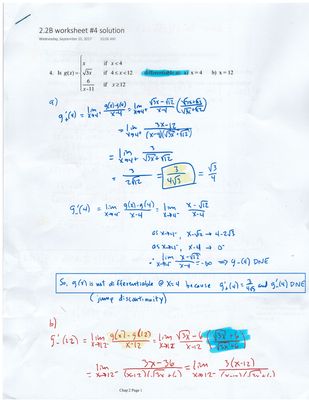 2.2B worksheet #4 solution
Wednesday, September 20, 2017 10:06 AM
4. Is g(x) = { x if x<4
√3x if 4≤x<12 differentiable at a) x=4 b) x=12
6/(x-11) if x≥12
a)
g'₊(4) = lim x→4⁺ (g(x)-g(4))/(x-4) = lim x→4⁺ (√3x-√12)/(x-4) (√3x+√12)/(√3x+√12)
= lim x→4⁺ (3x-12)/((x-4)(√3x+√12))
= lim x→4⁺ 3/(√3x+√12)
= 3/(2√12) = 3/(4√3) = √3/4
g'₋(4) = lim x→4⁻ (g(x)-g(4))/(x-4) = lim x→4⁻ (x-√12)/(x-4)
as x→4⁻, x-√12 → 4-2√3
as x→4⁻, x-4 → 0⁻
∴ lim x→4⁻ (x-√12)/(x-4) = -∞ ⇒ g'₋(4) DNE
So, g(x) is not differentiable @ x=4 because g'₊(4) = 3/(4√3) and g'₋(4) DNE
(jump discontinuity)
b)
g'₋(12) = lim x→12⁻ (g(x)-g(12))/(x-12) = lim x→12⁻ (√3x-6)/(x-12) (√3x+6)/(√3x+6)
= lim x→12⁻ (3x-36)/((x-12)(√3x+6)) = lim x→12⁻ 3(x-12)/((x-12)(√3x+6))
Chap 2 Page 1